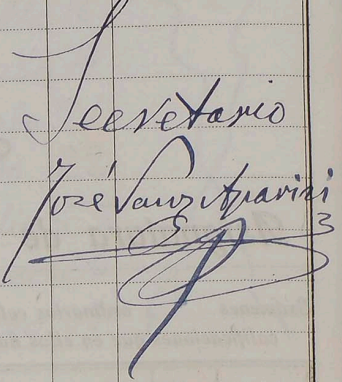 Secretario
José Sanz Aparisi